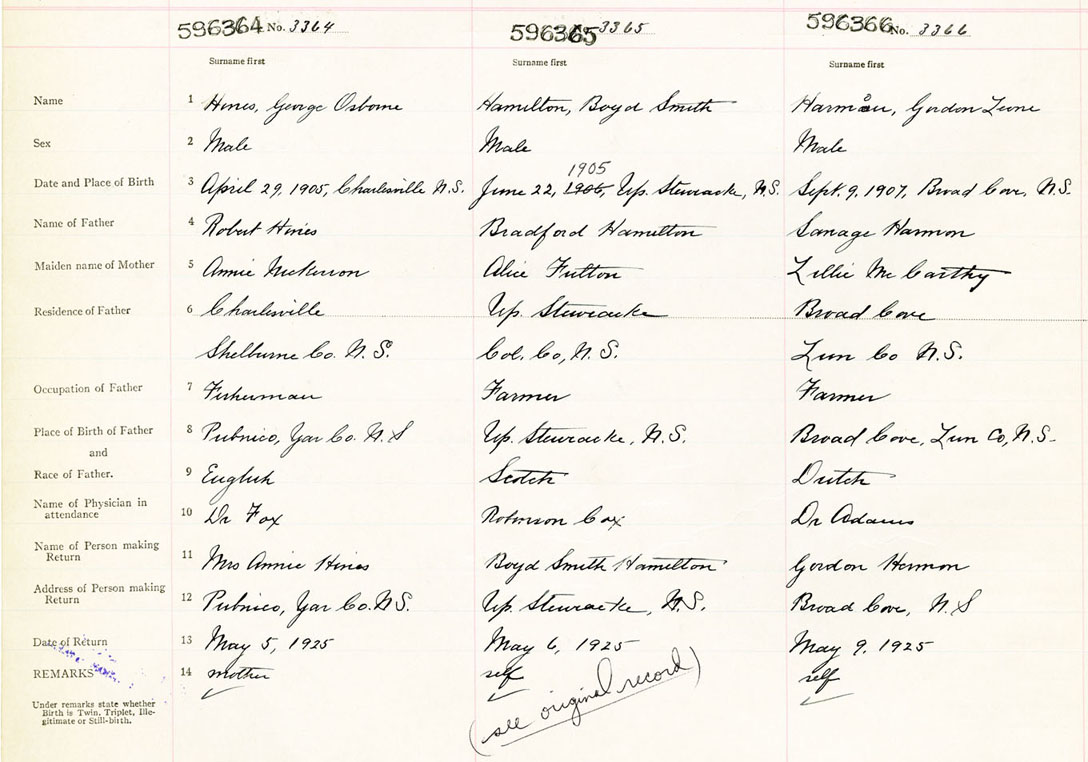 596364 No. 3364 596365 3365 596366 No. 3366
Surname first Surname first Surname first
Name 1 Hines, George Osborne Hamilton, Boyd Smith Harmon, Gordon
Sex 2 Male Male Male
1905
Date and Place of Birth 3 April 29, 1905, Charlesville N.S. June 22, 1906, Up. Stewiacke, N.S. Sept. 9, 1907, Broad Cove, N.S.
Name of Father 4 Robert Hines Bradford Hamilton Harmon
Maiden name of Mother 5 Annie Nickerson Alice Fulton Lillie McCarthy
Residence of Father 6 Charlesville Up. Stewiacke Broad Cove
Shelburne Co. N.S. Col. Co, N.S. Lun Co N.S.
Occupation of Father 7 Fisherman Farmer Farmer
Place of Birth of Father 8 Pubnico, Yar Co. N.S Up. Stewiacke, N.S. Broad Cove, Lun Co, N.S.
and
Race of Father. 9 English Scotch Dutch
Name of Physician in
attendance 10 Dr Fox Robinson Cox Dr Adams
Name of Person making
Return 11 Mrs Annie Hines Boyd Smith Hamilton Gordon Hermon
Address of Person making
Return 12 Pubnico, Yar Co. N.S. Up. Stewiacke, N.S. Broad Cove, N.S
Date of Return 13 May 5, 1925 May 6, 1925 May 9, 1925
REMARKS 14 mother self self
(see original record)
Under remarks state whether
Birth is Twin, Triplet, Ille-
gitimate or Still-birth.